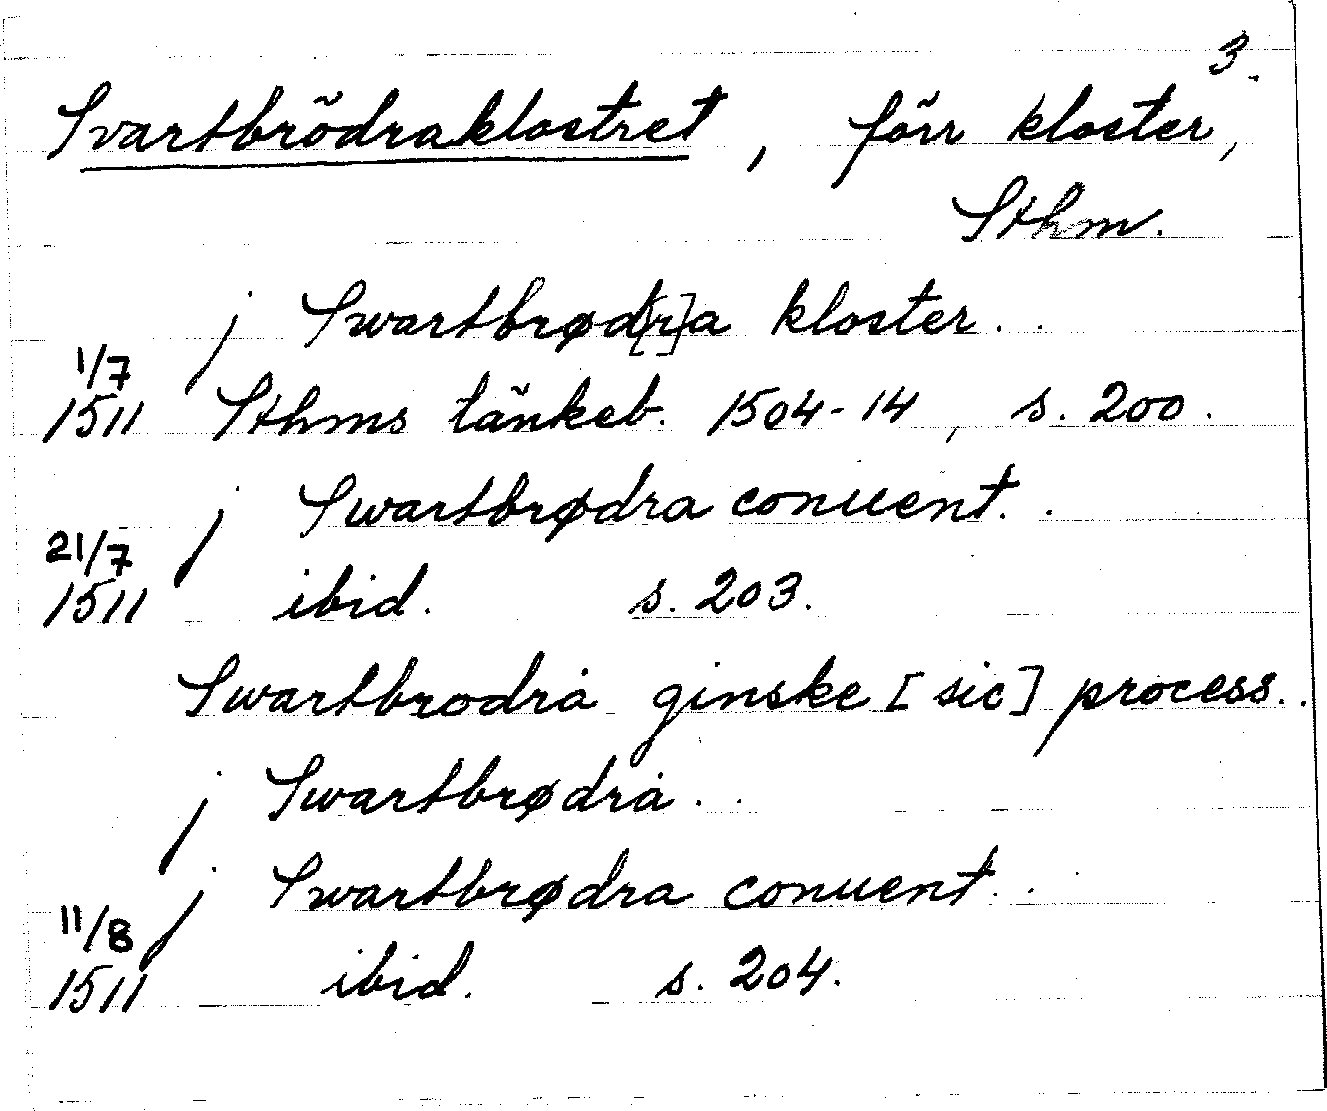 3.
Svartbrödraklostret, förr kloster,
Sthm.
j Swartbrød[r]a kloster..
1/7
1511 Sthms tänkeb. 1504-14, s. 200.
j Swartbrødra conuent..
21/7
1511 ibid. s. 203.
Swartbrodra ginske [sic] process..
j Swartbrødra..
j Swartbrødra conuent..
11/8
1511 ibid. s. 204.